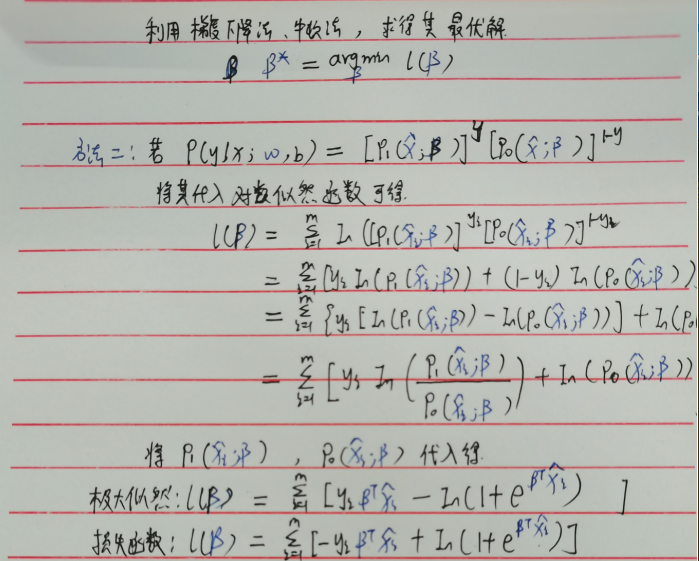 利用梯度下降法、牛顿法，求得其最优解
β β* = argmin_β l(β)
方法二：若 P(y|x; w,b) = [P₁(x̂;β)]^y [P₀(x̂;β)]^{1-y}
将其代入对数似然函数可得
l(β) = Σ_{i=1}^m ln([P₁(x̂ᵢ;β)]^{yᵢ} [P₀(x̂ᵢ;β)]^{1-yᵢ})
= Σ_{i=1}^m [yᵢ ln(P₁(x̂ᵢ;β)) + (1-yᵢ) ln(P₀(x̂ᵢ;β))
= Σ_{i=1}^m {yᵢ [ln(P₁(x̂ᵢ;β)) - ln(P₀(x̂ᵢ;β))] + ln(P₀
= Σ_{i=1}^m [yᵢ ln(P₁(x̂ᵢ;β) / P₀(x̂ᵢ;β)) + ln(P₀(x̂ᵢ;β))
将 P₁(x̂ᵢ;β), P₀(x̂ᵢ;β) 代入得
极大似然: l(β) = Σ_{i=1}^m [yᵢ β^T x̂ᵢ - ln(1+e^{β^T x̂ᵢ}) ]
损失函数: l(β) = Σ_{i=1}^m [-yᵢ β^T x̂ᵢ + ln(1+e^{β^T x̂ᵢ})]